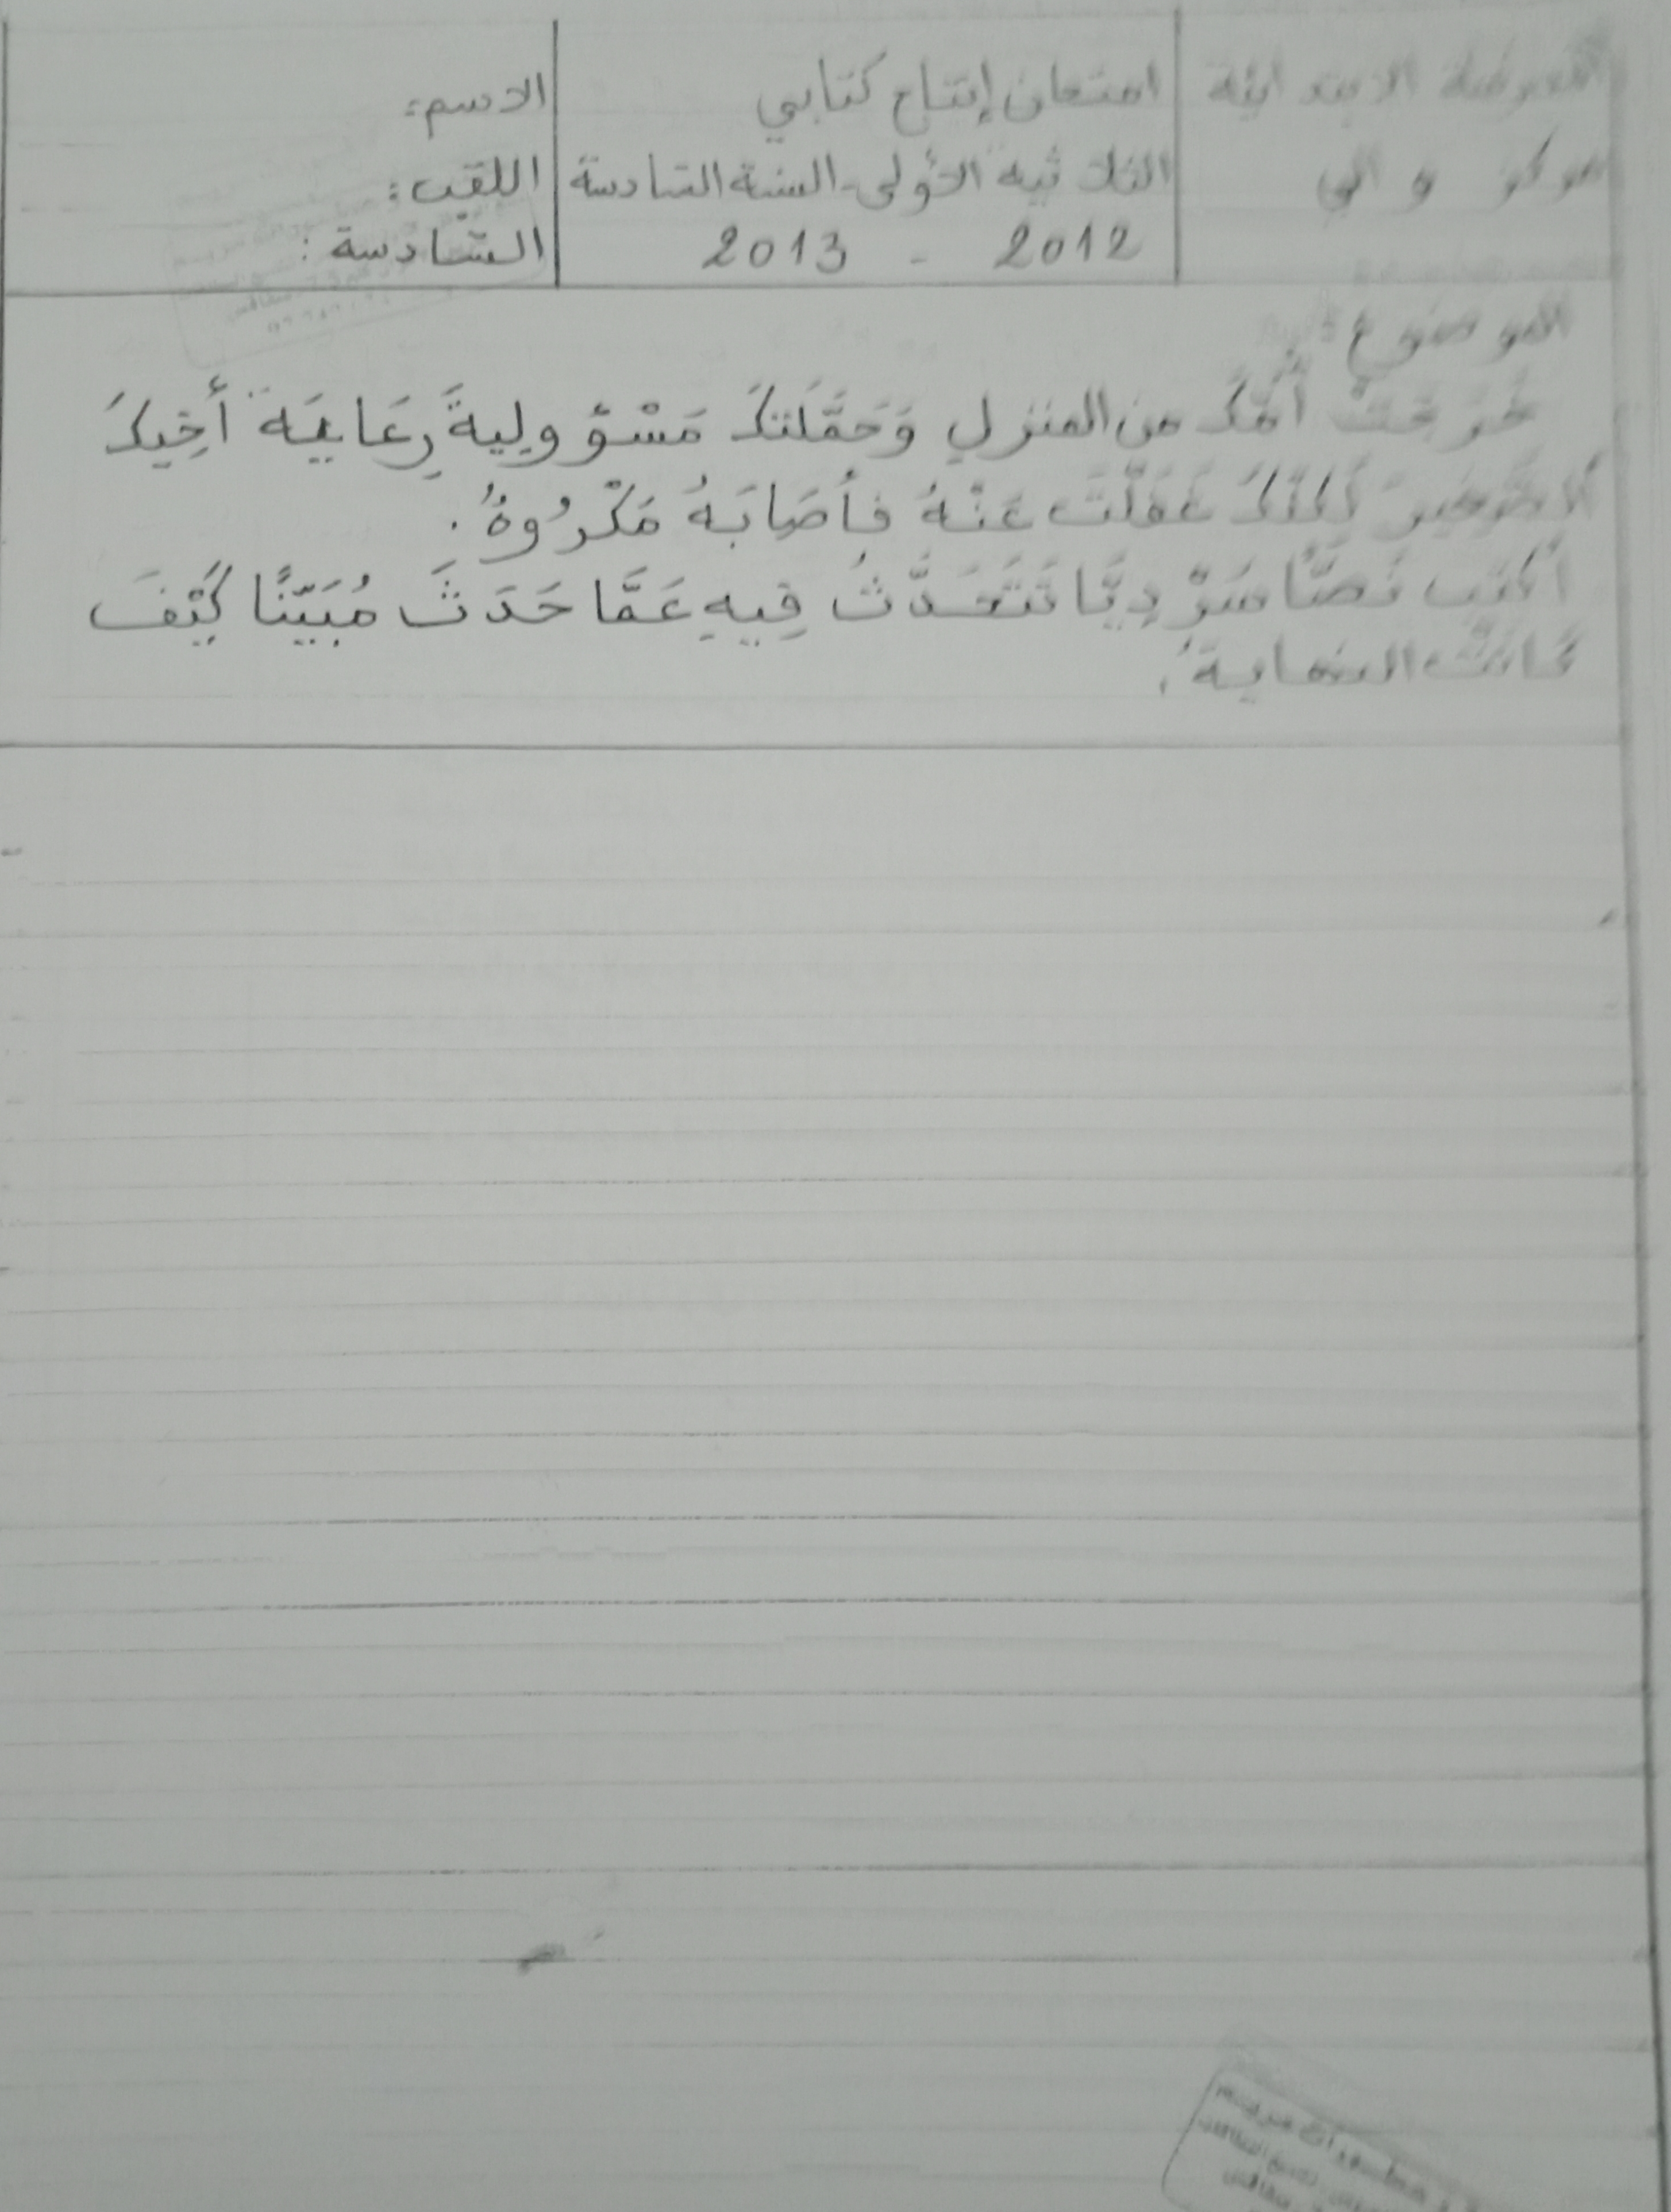 المدرسة الابتدائية
مركز والي
امتحان إنتاج كتابي
الثلاثية الأولى - السنة السادسة
2012 - 2013
الاسم:
اللقب:
السّادسة:
الموضوع:
خَرَجَتْ أُمُّكَ من المنزل وَحَمَّلَتكَ مَسْؤولِيةَ رِعَايَةِ أَخِيكَ
الصَّغِيرِ لَكِنَّكَ غَفَلْتَ عَنْهُ فأصَابَهُ مَكْرُوهُ.
أكتب نَصًّا سَرْدِيًّا تَتَحَدَّثُ فِيهِ عَمَّا حَدَثَ مُبَيّنًا كَيْفَ
كَانَتْ النهايةُ.